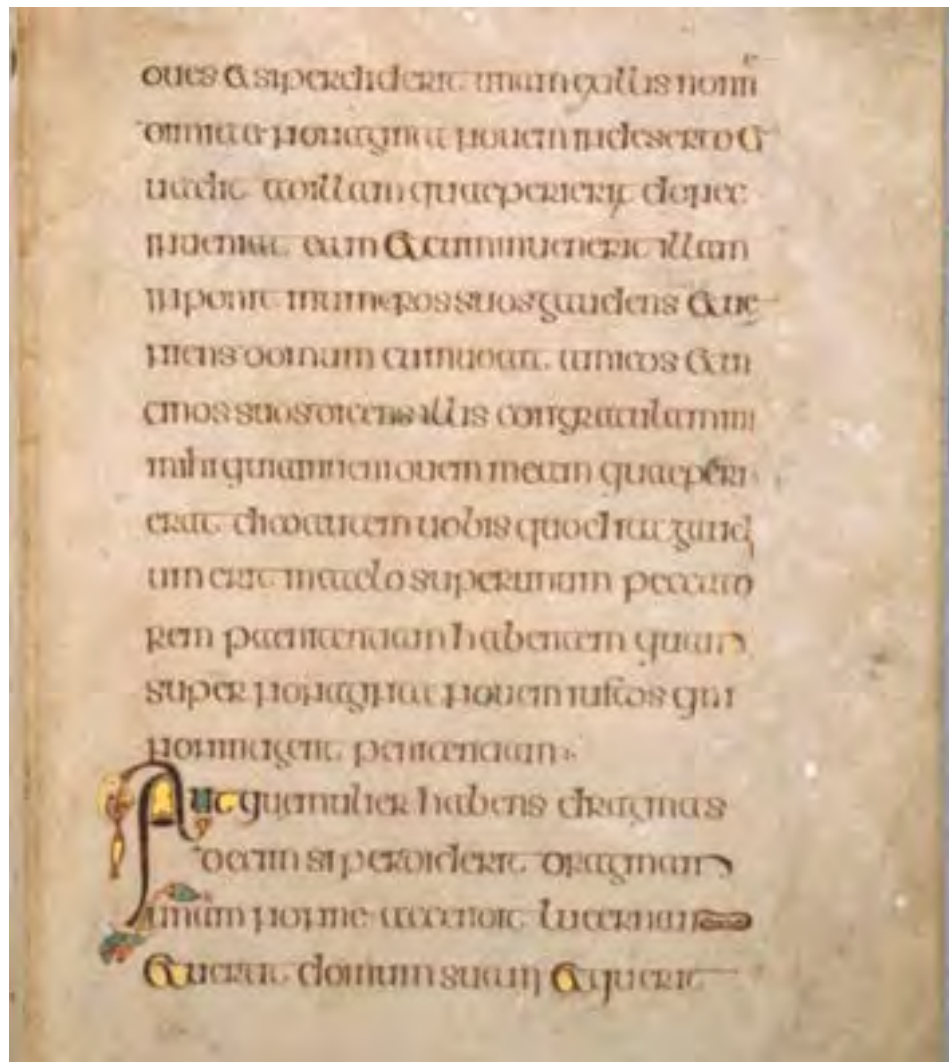 oues & siperdiderit unam exillis nonn
dimittit nonaginta nouem indeserto &
uadit adillam quaeperierit donec
inueniat eam &cuminuenerit illam
inponit inumeros suos gaudens &ue
niens domum conuocat amicos &ui
cinos suos dicens illis congratulamini
mihi quiainueni ouem meam quaeperi
erat dicoautem uobis quod ita gaud
ium erit incaelo super unum peccato
rem paenitentiam habentem quam
super nonaginta nouem iustos qui
nonindigent penitentiam
Aut quemulier habens dragmas
decim siperdiderit dragmam
unam nonne accendit lucernam
&uerrit domum suam &querit